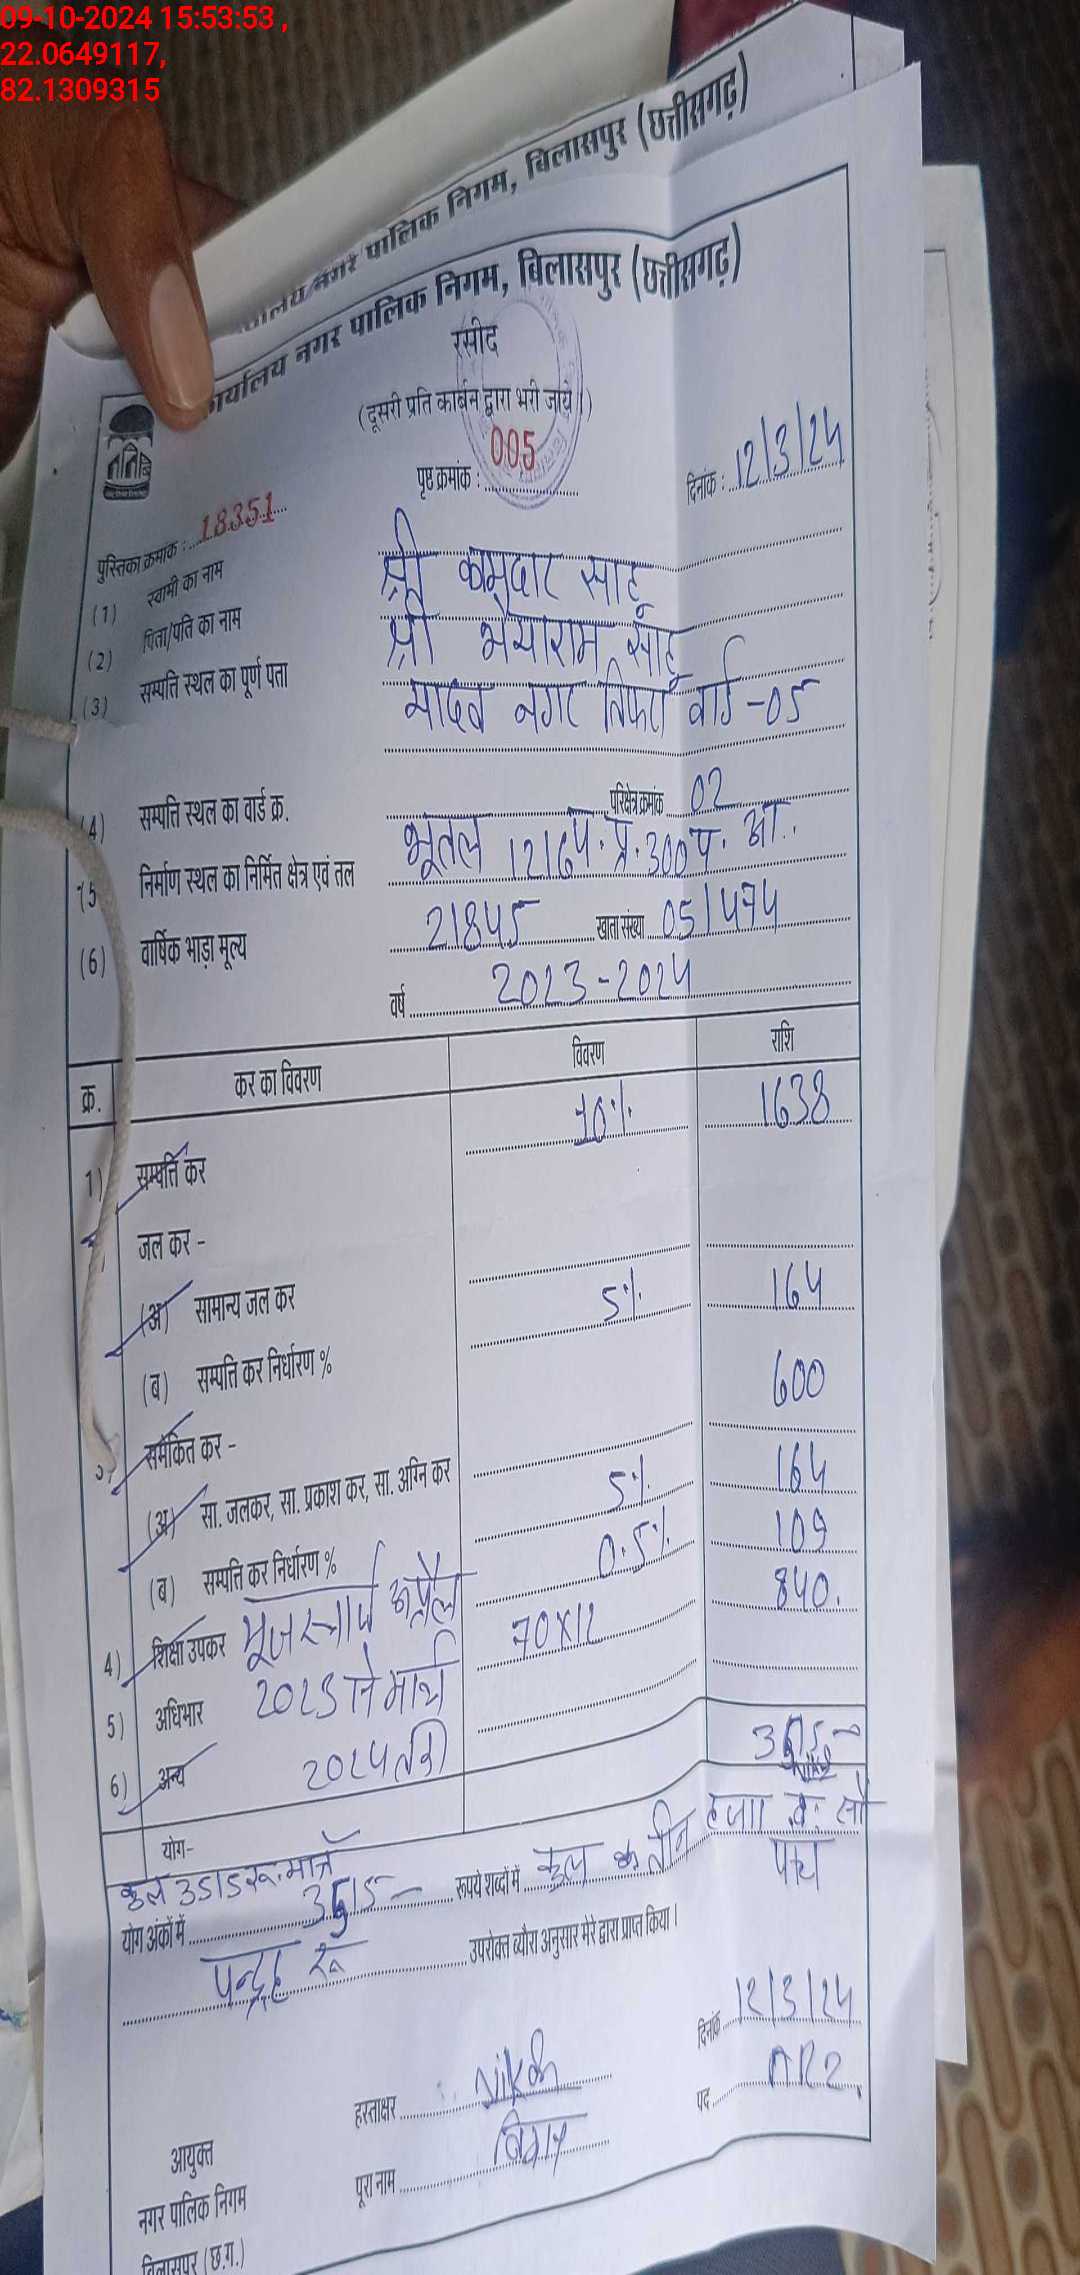 09-10-2024 15:53:53 ,
22.0649117,
82.1309315
नगर पालिक निगम, बिलासपुर (छत्तीसगढ़)
कार्यालय नगर पालिक निगम, बिलासपुर (छत्तीसगढ़)
रसीद
(दूसरी प्रति कार्बन द्वारा भरी जाये।)
पुस्तिका क्रमांक : 18351 पृष्ठ क्रमांक : 005 दिनांक : 12/3/24
(1) स्वामी का नाम श्री कामदार साहू
(2) पिता/पति का नाम श्री भैयाराम साहू
(3) सम्पत्ति स्थल का पूर्ण पता यादव नगर तिफरा वार्ड -05
(4) सम्पत्ति स्थल का वार्ड क्र. परिक्षेत्र क्रमांक 02
(5 निर्माण स्थल का निर्मित क्षेत्र एवं तल भूतल 1216प. प्र. 300प. आ.
(6) वार्षिक भाड़ा मूल्य 21845 खाता संख्या 05/474
वर्ष 2023-2024
क्र. कर का विवरण विवरण राशि
1) सम्पत्ति कर 10% 1638
जल कर -
(अ) सामान्य जल कर 5% 164
(ब) सम्पत्ति कर निर्धारण %
समेकित कर - 600
(अ) सा. जलकर, सा. प्रकाश कर, सा. अग्नि कर 5% 164
(ब) सम्पत्ति कर निर्धारण % 0.5% 109
4) शिक्षा उपकर अप्रैल 70X12 840.
5) अधिभार 2023 से मार्च
6) अन्य 2024 तक
योग- 3515-
कुल 3515रू. मात्र
योग अंकों में 3515- रूपये शब्दों में कुल तीन हजार पांच सौ
पन्द्रह रू उपरोक्त ब्यौरा अनुसार मेरे द्वारा प्राप्त किया।
दिनांक 12/3/24
हस्ताक्षर पद ARI
आयुक्त
पूरा नाम
नगर पालिक निगम
बिलासपुर (छ.ग.)